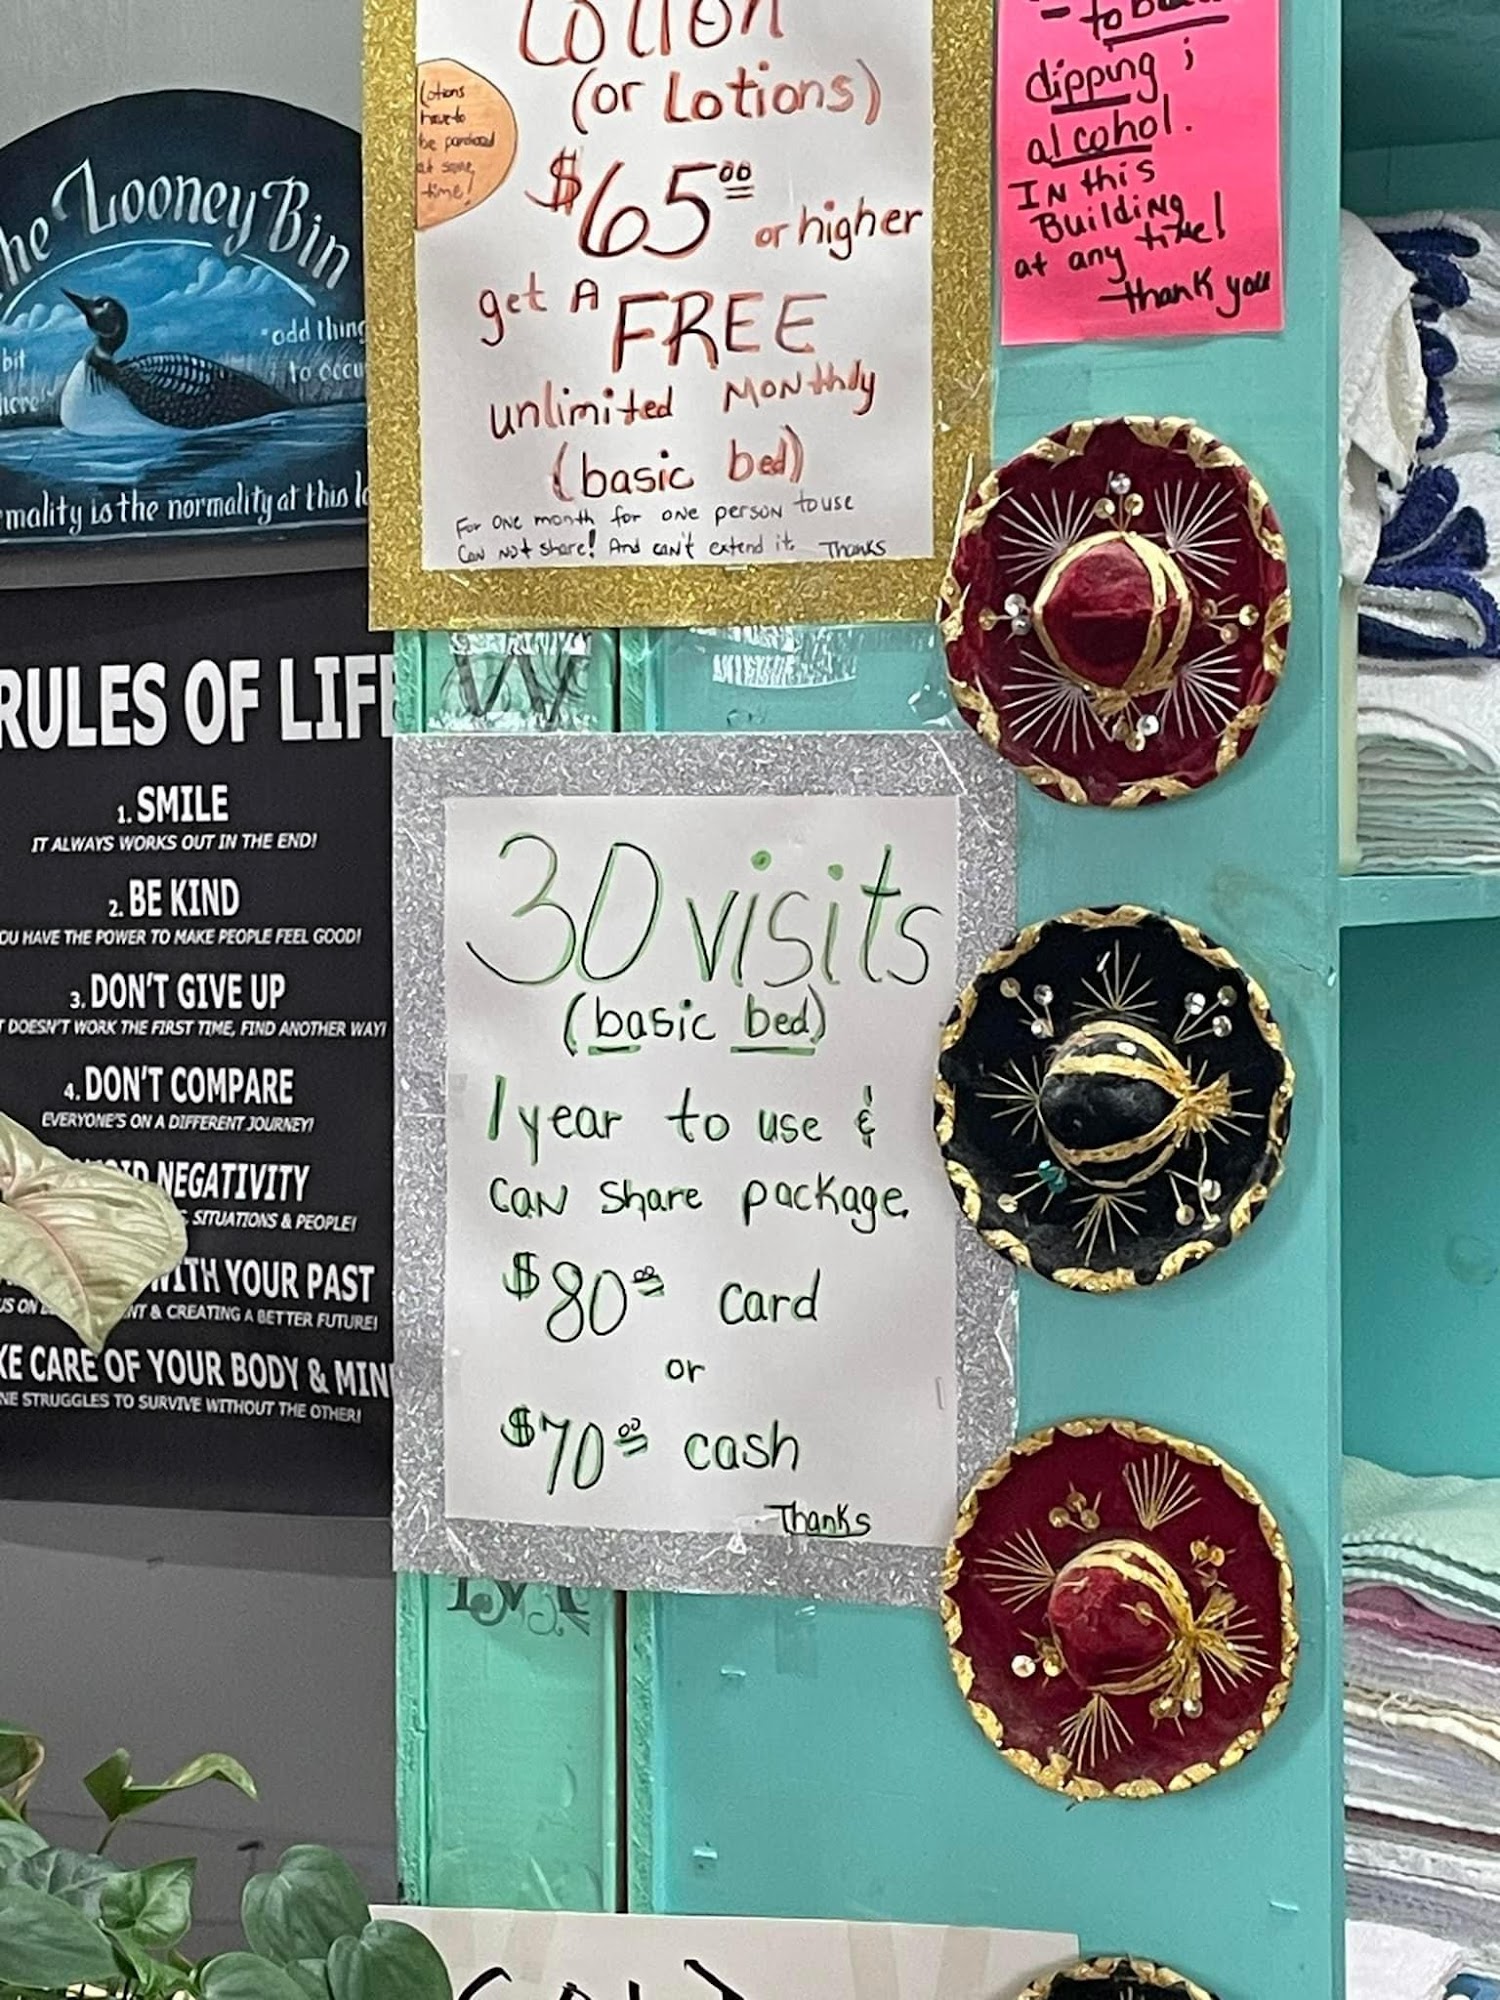 The Looney Bin
"odd thing
bit
to occu
here
mality is the normality at this lo
RULES OF LIFE
1. SMILE
IT ALWAYS WORKS OUT IN THE END!
2. BE KIND
OU HAVE THE POWER TO MAKE PEOPLE FEEL GOOD!
3. DON'T GIVE UP
T DOESN'T WORK THE FIRST TIME, FIND ANOTHER WAY!
4. DON'T COMPARE
EVERYONE'S ON A DIFFERENT JOURNEY!
NEGATIVITY
SITUATIONS & PEOPLE!
WITH YOUR PAST
US ON NT & CREATING A BETTER FUTURE!
KE CARE OF YOUR BODY & MIN
NE STRUGGLES TO SURVIVE WITHOUT THE OTHER!
Lotion
(or Lotions)
Lotions
have to
be purchased
at same
time!
$65.00 or higher
get A FREE
unlimited Monthly
(basic bed)
For one month for one person to use
Can not share! And can't extend it. Thanks
dipping ;
alcohol.
IN this
Building
at any time!
thank you
30 visits
(basic bed)
1 year to use &
can share package.
$80.00 card
or
$70.00 cash
Thanks